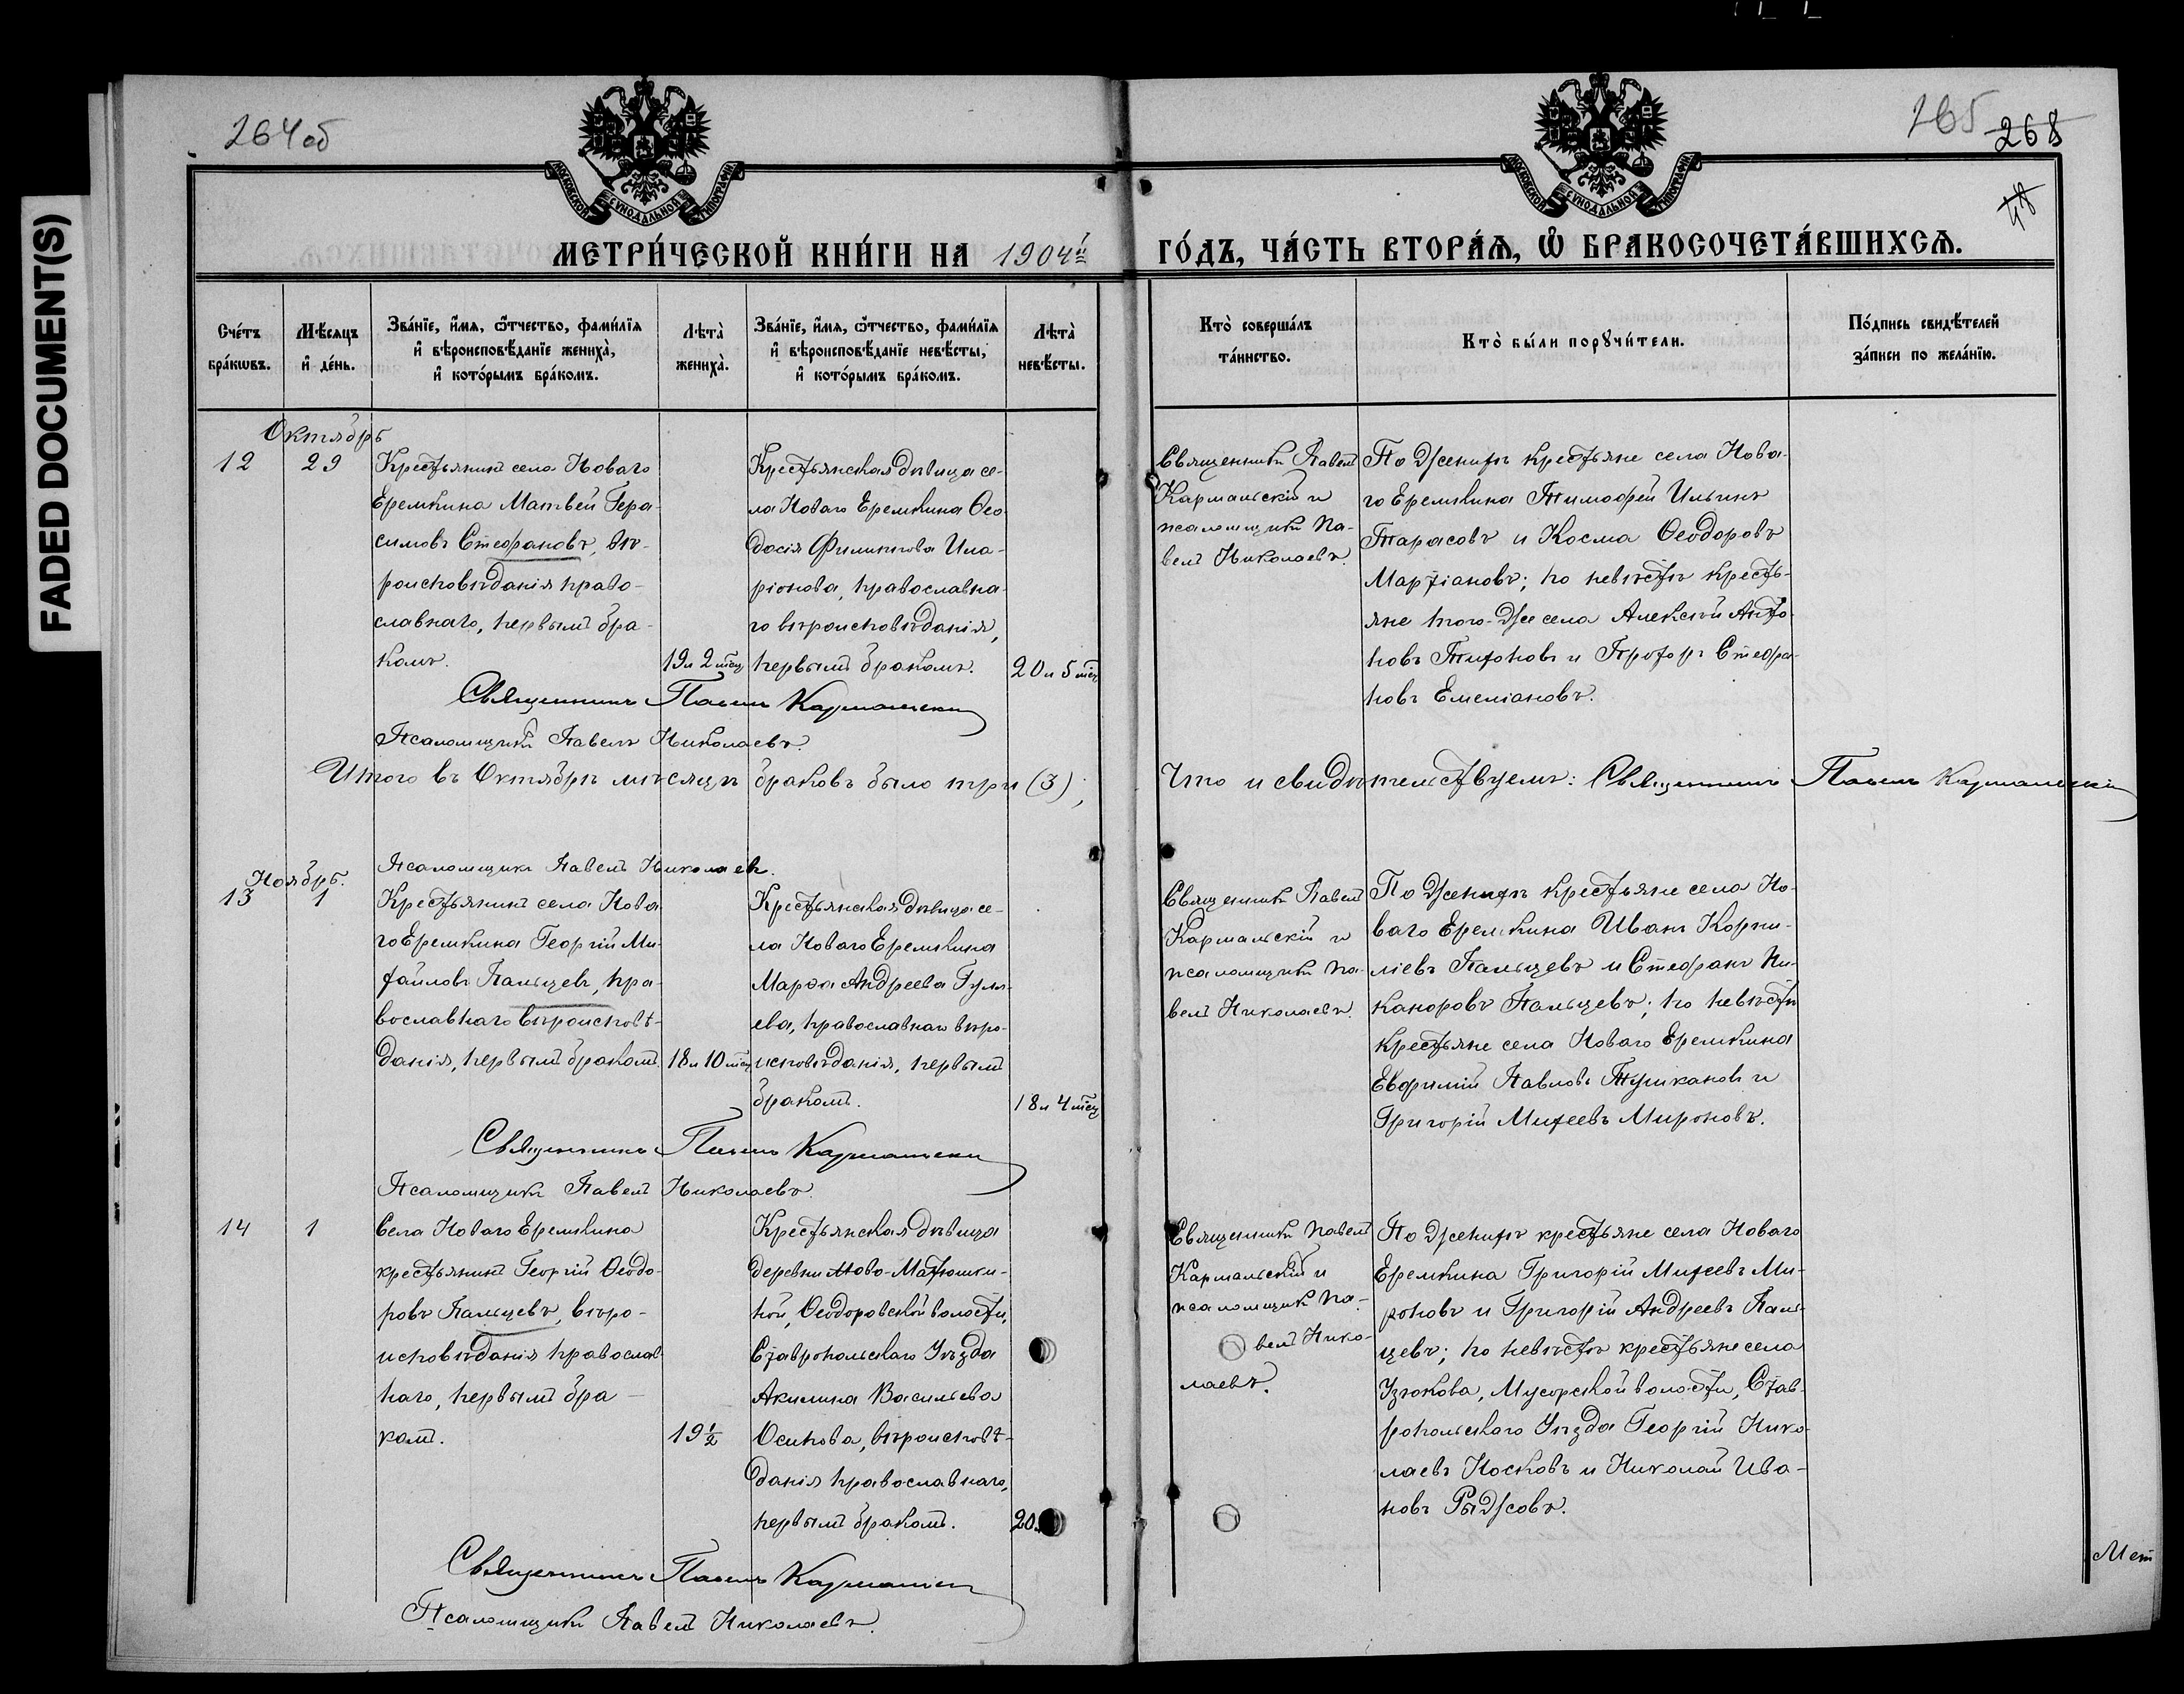 FADED DOCUMENT(S)
264об
265
268
48
МОСКОВСКОЙ СѴНОДАЛЬНОЙ ТИПОГРАФІИ
МОСКОВСКОЙ СѴНОДАЛЬНОЙ ТИПОГРАФІИ
МЕТРИ́ЧЕСКОЙ КНИ́ГИ НА 1904й
ГО́ДЪ, ЧА́СТЬ ВТОРА́Ѧ, Ѽ БРАКОСОЧЕТА́ВШИХСѦ.
Сче́тъ
бра́кѡвъ.
Мѣ́сяцъ
и҆ де́нь.
Зва́нїе, и҆́мѧ, ѻ҆́тчество, фами́лїѧ
и҆ вѣроисповѣ́данїе жениха̀,
и҆ кото́рымъ бра́комъ.
Лѣта̀
жениха̀.
Зва́нїе, и҆́мѧ, ѻ҆́тчество, фами́лїѧ
и҆ вѣроисповѣ́данїе невѣ́сты,
и҆ кото́рымъ бра́комъ.
Лѣта̀
невѣ́сты.
Кто̀ соверша́лъ
та́инство.
Кто̀ бы́ли порꙋчи́тели.
По́дпись свидѣ́телей
за́писи по жела́нїю.
Октябрь
12
29
Крестьянинъ села Новаго
Еремкина Матвей Гера-
симовъ Стефановъ, вѣ-
роисповѣданія право-
славнаго, первымъ бра-
комъ.
19л 2 мѣсц
Крестьянская дѣвица се-
ла Новаго Еремкина Ѳео-
досія Филиппова Ила-
ріонова, православна-
го вѣроисповѣданія,
первымъ бракомъ.
20л 5 мѣсц
Священникъ Павелъ
Кармальскій и
псаломщикъ Па-
велъ Николаевъ.
По женихѣ крестьяне села Нова-
го Еремкина Тимофей Ильинъ
Тарасовъ и Косма Ѳеодоровъ
Мартіановъ; по невѣстѣ кресть-
яне того-же села Алексѣй Анто-
новъ Тихоновъ и Прохоръ Стефа-
новъ Емеліановъ.
Священникъ Павелъ Кармальскій
Псаломщикъ Павелъ Николаевъ.
Итого въ Октябрѣ мѣсяцѣ браковъ было три (3);
Что и свидѣтельствуемъ: Священникъ Павелъ Кармальскій
Псаломщикъ Павелъ Николаевъ.
Ноябрь.
13
1
Крестьянинъ села Нова-
го Еремкина Георгій Ми-
хайловъ Пальцевъ, пра-
вославнаго вѣроисповѣ-
данія, первымъ бракомъ.
18л 10 мѣсц
Крестьянская дѣвица се-
ла Новаго Еремкина
Марѳа Андреева Гуля-
ева, православнаго вѣро-
исповѣданія, первымъ
бракомъ.
18л 4 мѣсц
Священникъ Павелъ
Кармальскій и
псаломщикъ Па-
велъ Николаевъ.
По женихѣ крестьяне села Но-
ваго Еремкина Иванъ Корни-
ліевъ Пальцевъ и Стефанъ Ни-
каноровъ Пальцевъ; по невѣстѣ
крестьяне села Новаго Еремкина
Евфимій Павловъ Тушкановъ и
Григорій Михеевъ Мироновъ.
Священникъ Павелъ Кармальскій
Псаломщикъ Павелъ Николаевъ.
14
1
Села Новаго Еремкина
крестьянинъ Георгій Ѳеодо-
ровъ Пальцевъ, вѣро-
исповѣданія православ-
наго, первымъ бра-
комъ.
19½
Крестьянская дѣвица
деревни Ново-Матюшки-
ной, Ѳеодоровской волости,
Ставропольскаго Уѣзда
Акилина Васильева
Осипова, вѣроисповѣ-
данія православнаго,
первымъ бракомъ.
20
Священникъ Павелъ
Кармальскій и
псаломщикъ Па-
велъ Нико-
лаевъ.
По женихѣ крестьяне села Новаго
Еремкина Григорій Михеевъ Ми-
роновъ и Григорій Андреевъ Паль-
цевъ; по невѣстѣ крестьяне села
Узюкова, Мусорской волости, Став-
ропольскаго Уѣзда Георгій Нико-
лаевъ Носковъ и Николай Ива-
новъ Рыжовъ.
Священникъ Павелъ Кармальскій
Псаломщикъ Павелъ Николаевъ.
Мет